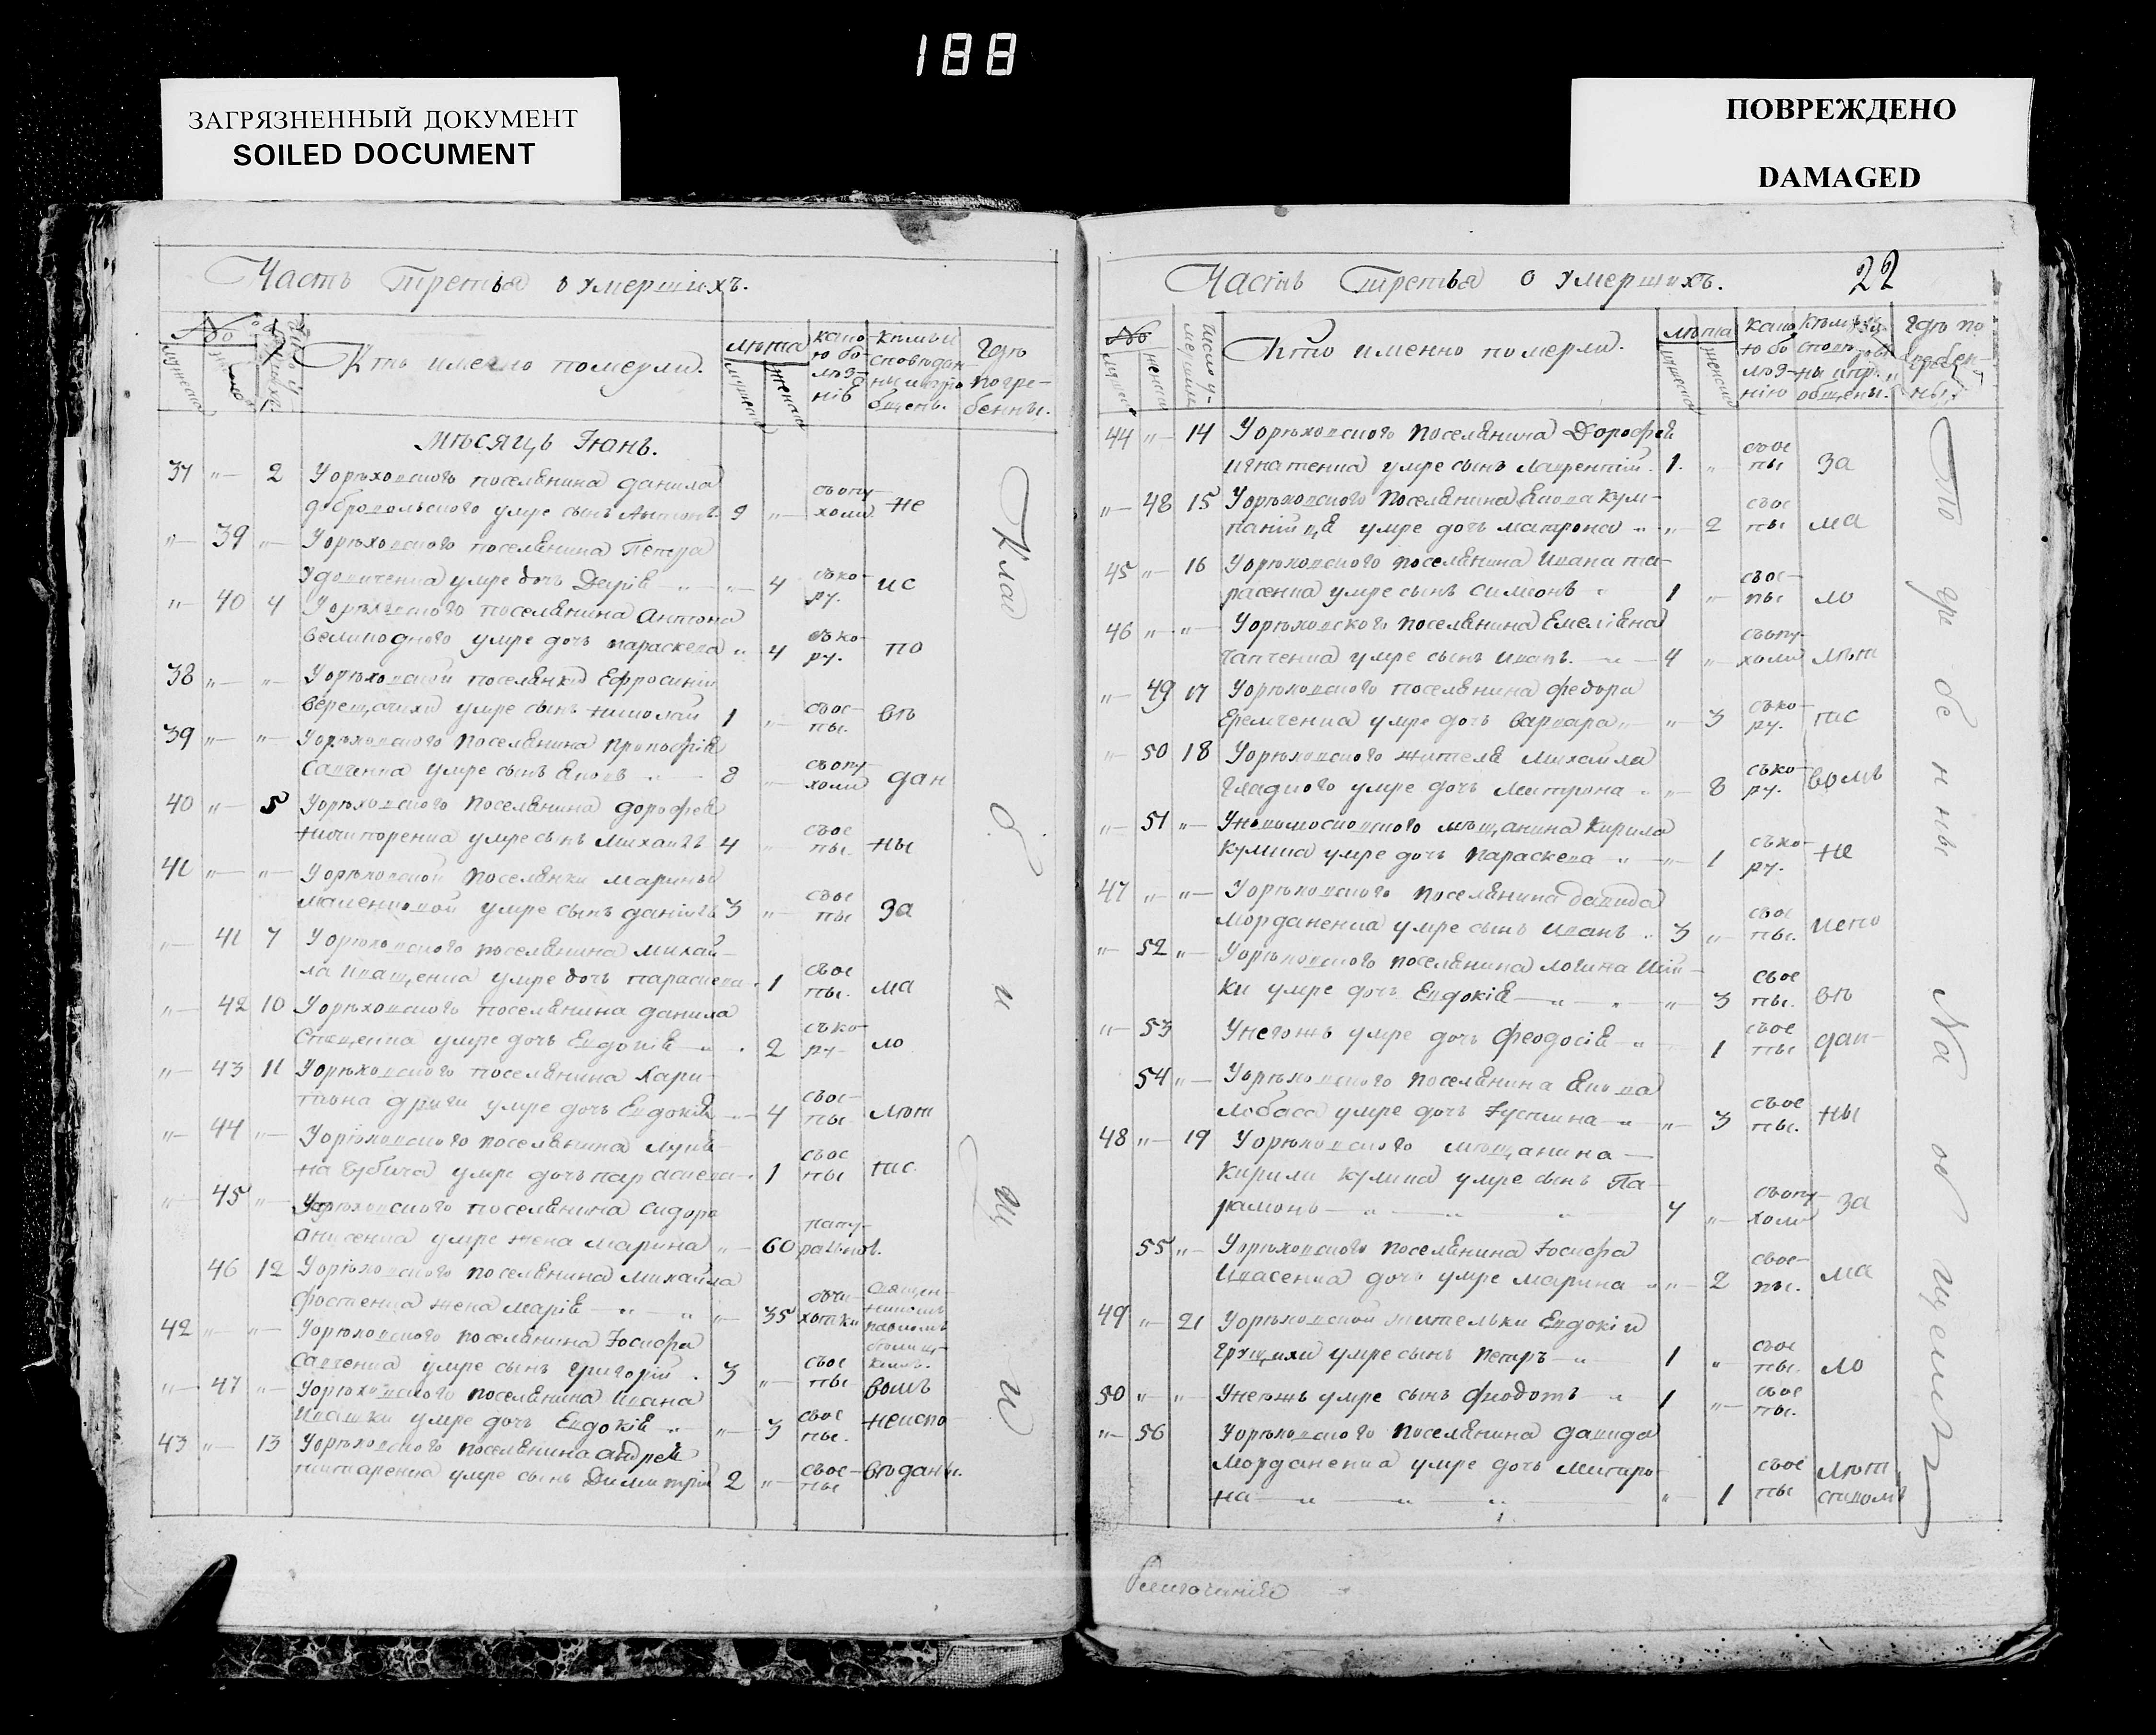 188
ЗАГРЯЗНЕННЫЙ ДОКУМЕНТ
SOILED DOCUMENT
ПОВРЕЖДЕНО
DAMAGED
Часть третья о умершихъ.
№
Кто имено померли.
лѣта
како
ю бо
лѣз-
нію
Кѣмъ и
сповѣдан
ны и прїо
бщены.
Гдѣ
погре-
бенны.
Мѣсяць Іюнь.
37 „ 2 Уорѣховского поселянина данила
добровольского умре сынъ Антонъ 9 „ съопу-
холи не
„ 39 „ Уорѣховского поселянина Петра
умре дочь „ 4 съко-
ру. ис
„ 40 4 Уорѣховского поселянина Антона
великодного умре дочь параскева „ 4 съко-
ру. по
38 „ „ Уорѣховской поселянки Ефросиніи
верещачихи умре сынъ николай 1 „ съос-
пы. вѣ
39 „ „ Уорѣховского поселянина прокофія
Савченка умре сынъ Яковъ 8 „ съопу-
холи дан
40 „ 5 Уорѣховского поселянина дорофея
ничипоренка умре сынъ Михаилъ 4 „ съос
пы. ны
41 „ „ Уорѣховской поселянки марины
умре сынъ даніилъ 3 „ съос
пы за
„ 41 7 Уорѣховского поселянина михай-
ла иващенка умре дочь параскева 1 съос
пы. ма
„ 42 10 Уорѣховского поселянина данила
умре дочь Евдокія 2 съко-
ру ло
„ 43 11 Уорѣховского поселянина Хари-
тона умре дочь Евдокія 4 съос-
пы лѣт
„ 44 „ Уорѣховского поселянина лукя-
на губича умре дочь параскева 1 съос
пы
„ 45 „ Уорѣховского поселянина сидора
умре жена марина „ 60 нату-
рально.
46 12 Уорѣховского поселянина михайла
жена марія „ 35 съчи-
хотки
42 „ „ Уорѣховского поселянина Іосифа
Савченка умре сынъ григорій 3 „ съос
пы вомъ
„ 47 „ Уорѣховского поселянина ивана
ивашки умре дочь Евдокія „ 3 съос
пы. неиспо
43 „ 13 Уорѣховского поселянина андрея
умре сынъ Димитрій 2 „ съос-
пы вѣданы.
Кла
д
и
щ
и
Часть третья о умершихъ. 22
№
Кто именно померли.
лѣта
како
ю бо
лѣз-
нію
Гдѣ по
гребен-
ны
44 „ 14 Уорѣховского поселянина Дорофея
игнатенка умре сынъ лаврентій. 1. „ съос
пы за
„ 48 15 Уорѣховского поселянина Якова кум-
панійця умре дочь матрона „ 2 съос
пы ма
45 „ 16 Уорѣховского поселянина Ивана та-
расенка умре сынъ симеонъ 1 „ съос-
пы ло
46 „ „ Уорѣховского поселянина Емеліяна
гапченка умре сынъ иванъ. 4 „ съопу-
холи лѣт
„ 49 17 Уорѣховского поселянина федора
Еремченка умре дочь варвара „ 3 съко-
ру.
„ 50 18 Уорѣховского жителя михайла
гладкого умре дочь Митрона „ 8 съко-
ру. вомъ
„ 51 „ Уновомосковского мѣщанина Кирила
кулика умре дочь параскева „ 1 съко-
ру. не
47 „ „ Уорѣховского поселянина давида
морданенка умре сынъ иванъ 3 „ съос
пы. испо
„ 52 „ Уорѣховского поселянина логина
ки умре дочь Евдокія „ 3 съос
пы. вѣ
„ 53 Унегожъ умре дочь Феодосія 1 съос
пы дан-
54 „ Уорѣховского поселянина Якова
лобаса умре дочь Іустина „ 3 съос
пы. ны
48 „ 19 Уорѣховского мѣщанина
Кирили кулика умре сынъ Па-
рамонъ 4 „ съопу-
холи за
55 „ Уорѣховского поселянина Іосифа
ивасенка дочь умре марина „ 2 съос-
пы. ма
49 „ 21 Уорѣховской жительки Евдокіи
умре сынъ петръ 1 „ съос
пы. ло
50 „ „ Унеюжъ умре сынъ Фиодотъ 1 „ съос
пы.
„ 56 Уорѣховского поселянина давида
морданенка умре дочь митро-
на „ 1 съос
пы лѣт
ствомъ
По гре бе н ны На ой